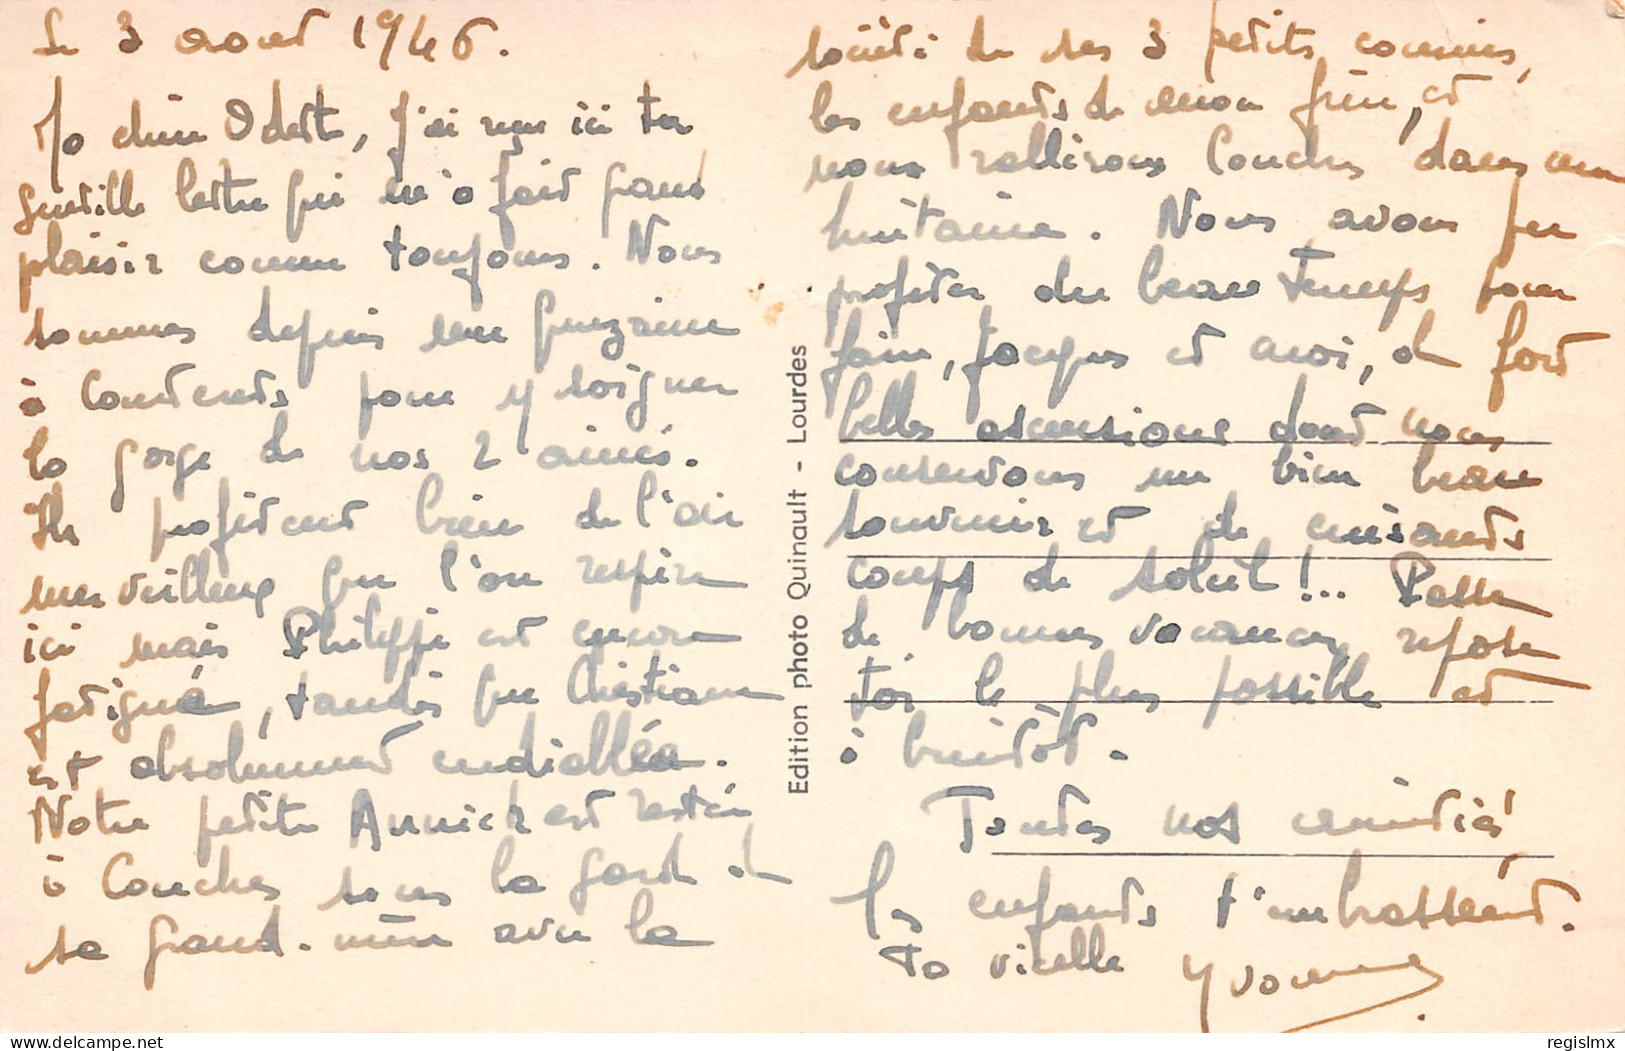 Le 3 aout 1946.
Ma chère Odette, j'ai reçu ici ta
gentille lettre qui m'a fait grand
plaisir comme toujours. Nous
sommes depuis une quinzaine
à Cauterets pour y soigner
la gorge de nos 2 aînés.
Ils profitent bien de l'air
merveilleux que l'on respire
ici mais Philippe est encore
fatigué, tandis que Christiane
est absolument endiablée.
Notre petite Annick est restée
à Couches sous la garde de
sa grand-mère avec la
société de ses 3 petits cousins,
les enfants de mon frère, et
nous rallirons Couches dans une
huitaine. Nous avons pu
profiter du beau temps pour
faire, Jacques et moi, de fort
belles ascensions dont nous
conservons un bien beau
souvenir et de cuisants
coups de soleil !... Passe
de bonnes vacances, repose
toi le plus possible et
à bientôt.
Toutes nos amitiés
Les enfants t'embrassent.
Ta vieille Yvonne
Edition photo Quinault - Lourdes
regislmx
delcampe.net